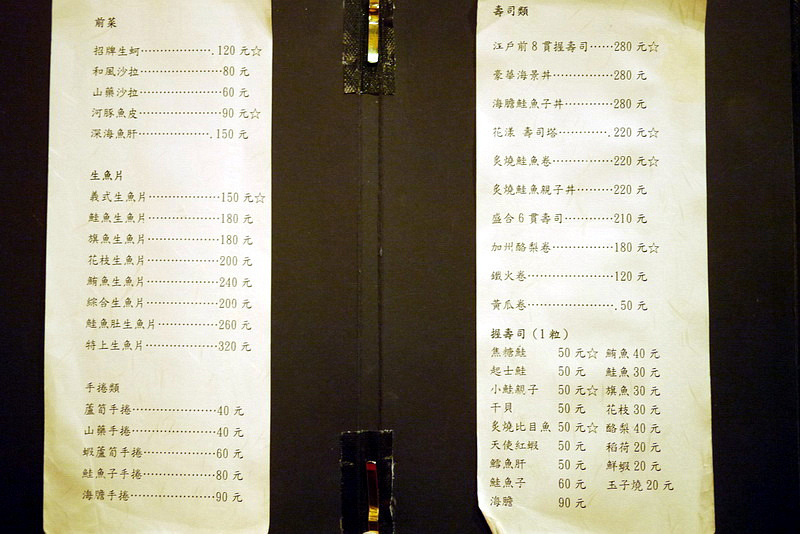 前菜
招牌生蚵··················.120 元☆
和風沙拉····················80 元
山藥沙拉····················60 元
河豚魚皮····················90 元☆
深海魚肝··················.150 元
生魚片
義式生魚片··················150 元☆
鮭魚生魚片··················180 元
旗魚生魚片··················180 元
花枝生魚片··················200 元
鮪魚生魚片··················240 元
綜合生魚片··················200 元
鮭魚肚生魚片···············260 元
特上生魚片··················320 元
手捲類
蘆筍手捲·····················40 元
山藥手捲·····················40 元
蝦蘆筍手捲··················60 元
鮭魚子手捲··················80 元
海膽手捲·····················90 元
壽司類
江戶前 8 貫握壽司······280 元☆
豪華海景丼···············280 元
海膽鮭魚子丼············280 元
花漾 壽司塔············.220 元☆
炙燒鮭魚卷···············220 元☆
炙燒鮭魚親子丼·········220 元
盛合 6 貫壽司············210 元
加州酪梨卷···············180 元☆
鐵火卷·····················120 元
黃瓜卷·····················.50 元
握壽司 (1 粒)
焦糖鮭 50 元☆ 鮪魚 40 元
起士鮭 50 元 鮭魚 30 元
小鮭親子 50 元☆ 旗魚 30 元
干貝 50 元 花枝 30 元
炙燒比目魚 50 元☆ 酪梨 40 元
天使紅蝦 50 元 稻荷 20 元
鱈魚肝 50 元 鮮蝦 20 元
鮭魚子 60 元 玉子燒 20 元
海膽 90 元